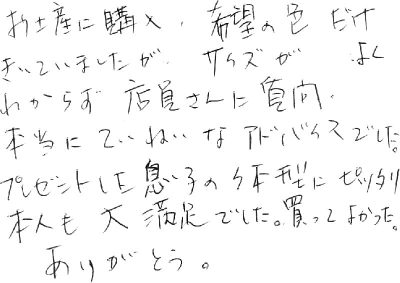 お土産に購入、希望の色だけ
きいていましたが、サイズが よく
わからず 店員さんに質問、
本当にていねいなアドバイスでした。
プレゼントした息子の体型にピッタリ
本人も大満足でした。買ってよかった。
ありがとう。